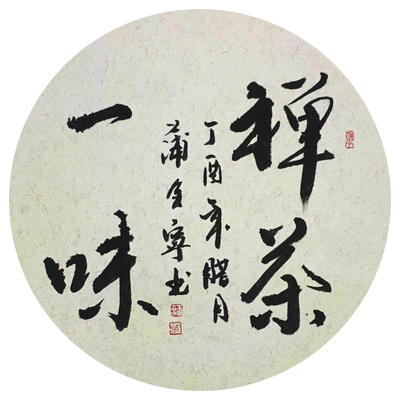 禅茶
一味
丁酉年腊月
蒲全寧书